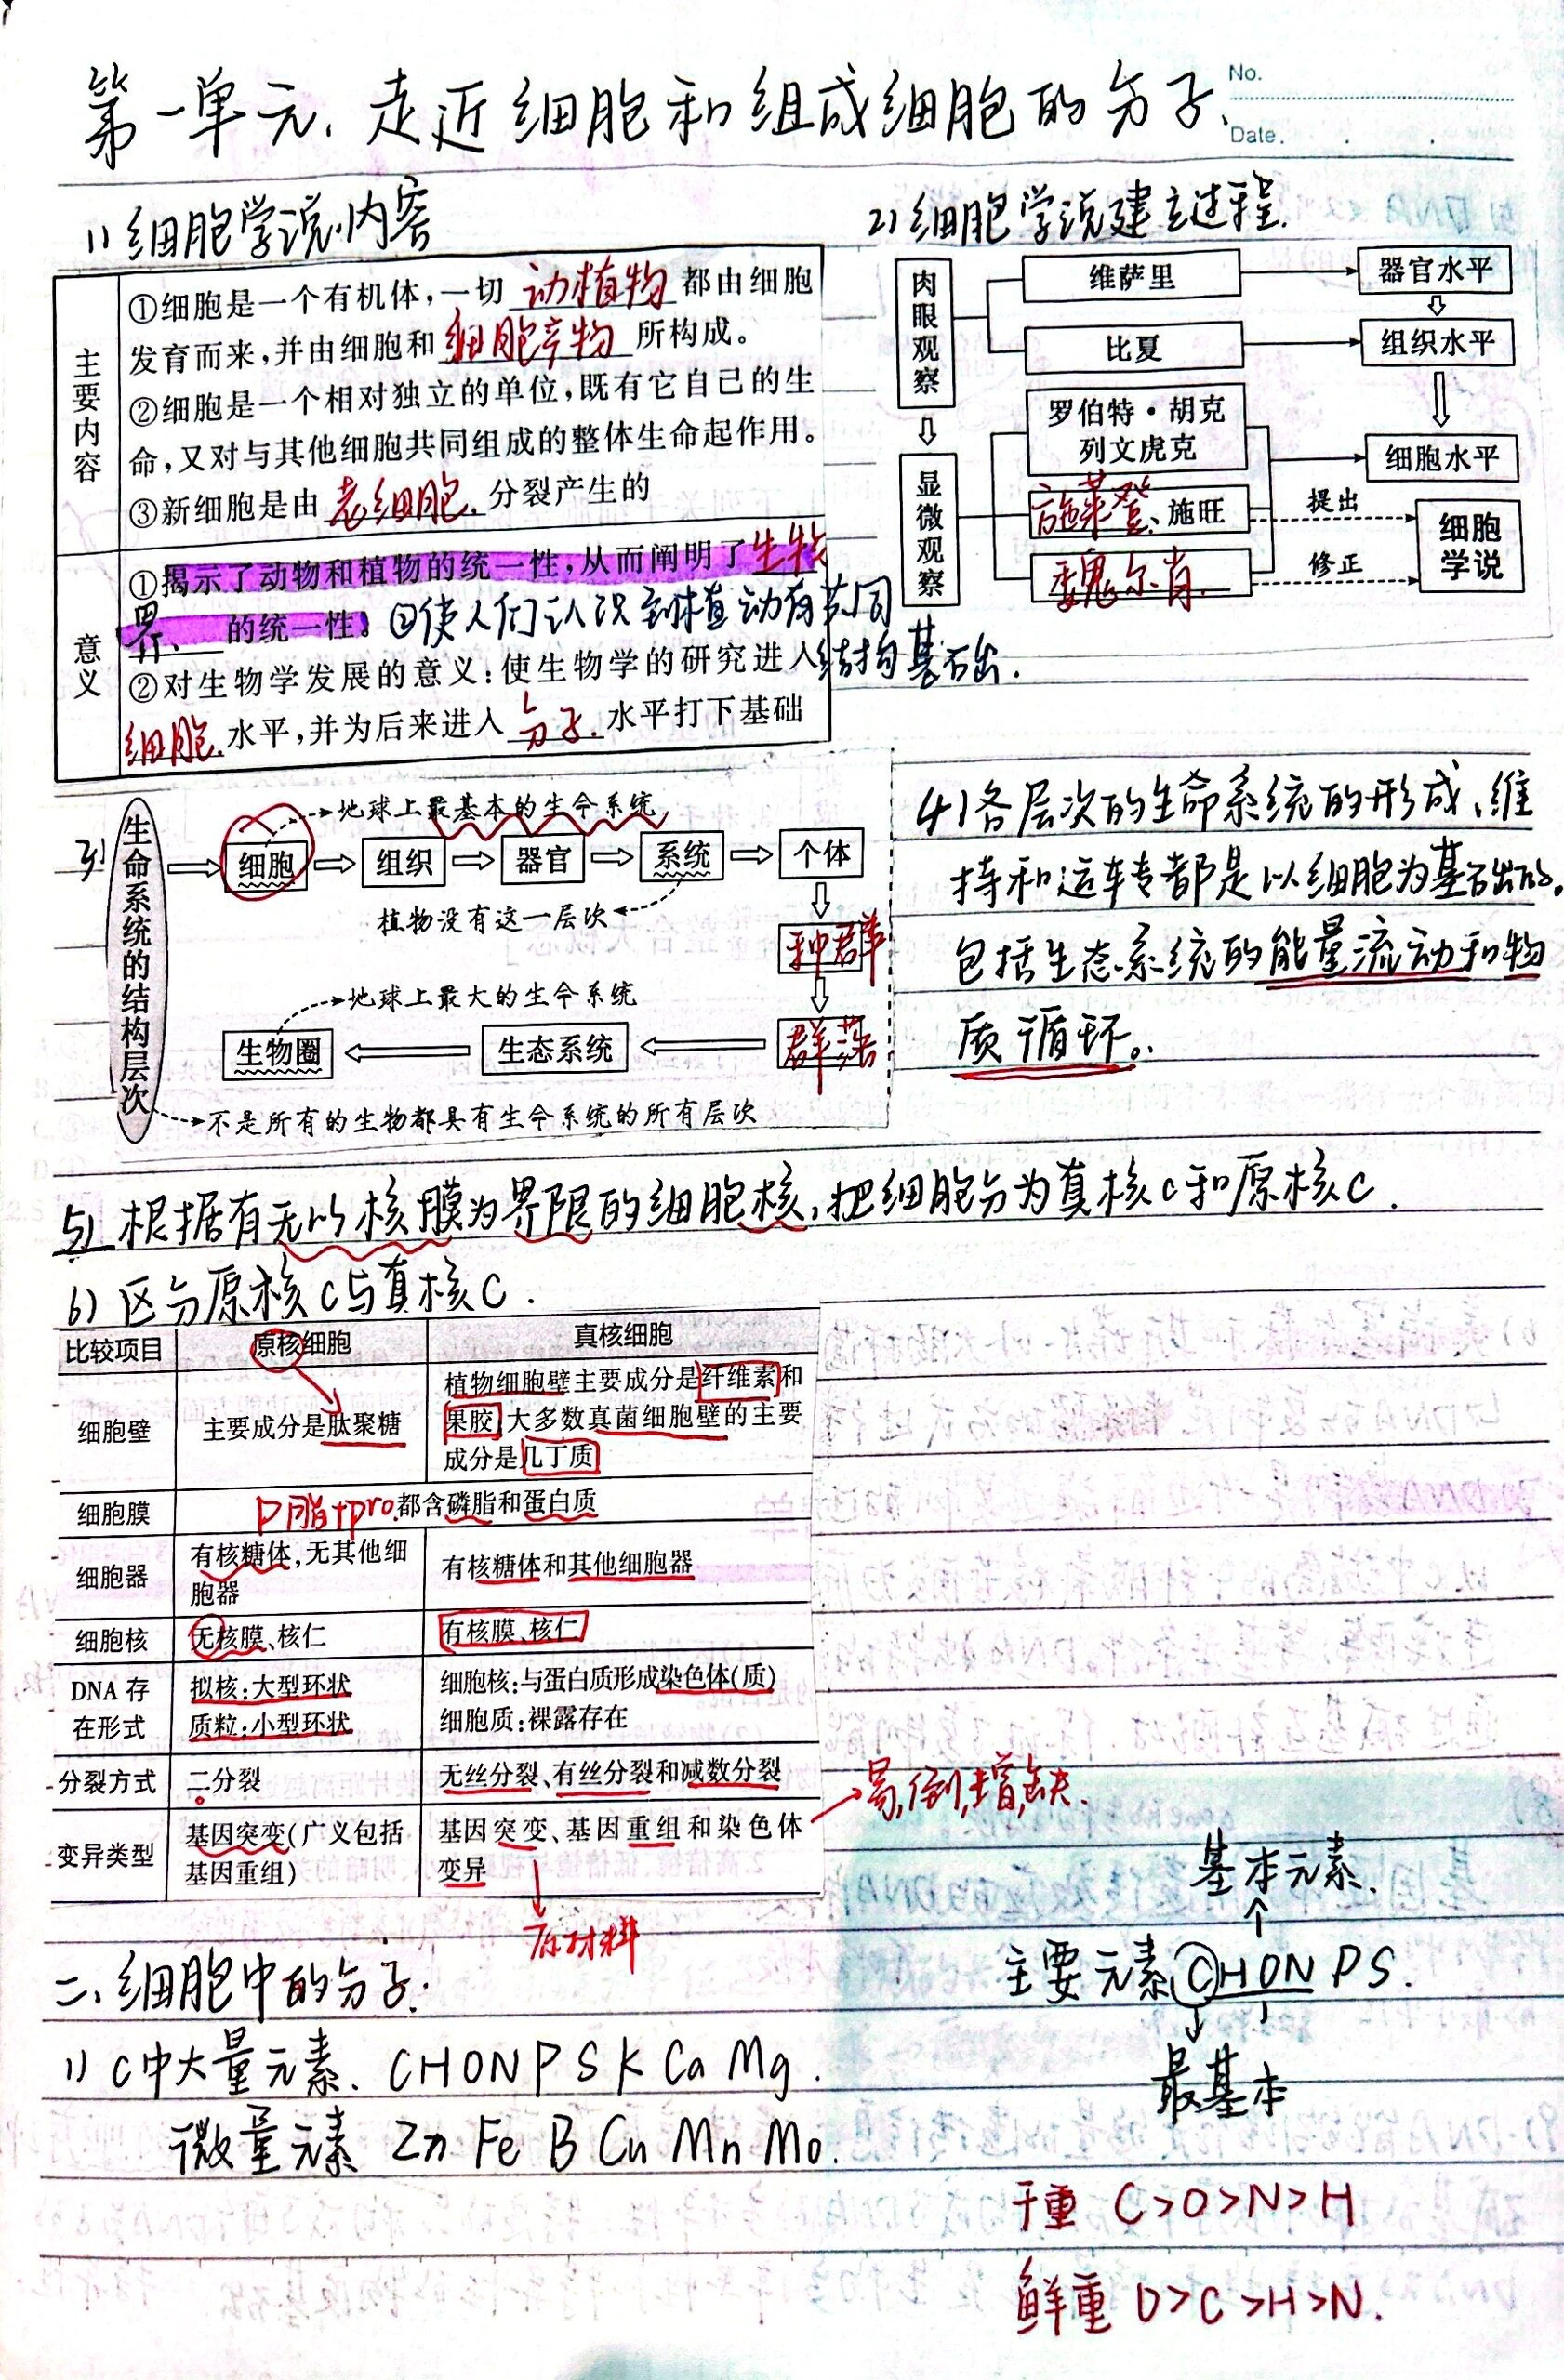 第一单元、走近细胞和组成细胞的分子、
No.
Date.
1) 细胞学说内容
主要内容
①细胞是一个有机体,一切 动植物 都由细胞
发育而来,并由细胞和 细胞产物 所构成。
②细胞是一个相对独立的单位,既有它自己的生
命,又对与其他细胞共同组成的整体生命起作用。
③新细胞是由 老细胞 分裂产生的
意义
①揭示了动物和植物的统一性,从而阐明了 生物
界 的统一性。②使人们认识到植动有共同
结构基础.
②对生物学发展的意义:使生物学的研究进入
细胞 水平,并为后来进入 分子 水平打下基础
2) 细胞学说建立过程.
肉眼观察
维萨里
器官水平
比夏
组织水平
显微观察
罗伯特·胡克
列文虎克
细胞水平
施莱登、施旺
提出
细胞
学说
魏尔肖
修正
3)
生命系统的结构层次
地球上最基本的生命系统
细胞
组织
器官
系统
个体
植物没有这一层次
种群
地球上最大的生命系统
生物圈
生态系统
群落
不是所有的生物都具有生命系统的所有层次
4) 各层次的生命系统的形成、维
持和运转专都是以细胞为基础的。
包括生态系统的能量流动和物
质循环。
5) 根据有无以核膜为界限的细胞核,把细胞分为真核c和原核c.
6) 区分原核c与真核C.
比较项目 原核细胞 真核细胞
细胞壁 主要成分是肽聚糖
植物细胞壁主要成分是纤维素和
果胶;大多数真菌细胞壁的主要
成分是几丁质
细胞膜 P脂+pro. 都含磷脂和蛋白质
细胞器
有核糖体,无其他细
胞器
有核糖体和其他细胞器
细胞核 无核膜、核仁 有核膜、核仁
DNA存
在形式
拟核:大型环状
质粒:小型环状
细胞核:与蛋白质形成染色体(质)
细胞质:裸露存在
分裂方式 二分裂 无丝分裂、有丝分裂和减数分裂
变异类型
基因突变(广义包括
基因重组)
基因突变、基因重组和染色体
变异
易,倒,增,缺.
原材料
二、细胞中的分子.
1) C中大量元素. CHONPSKCaMg.
微量元素 Zn Fe B Cu Mn Mo.
基本元素.
主要元素CHONPS.
最基本
干重 C>O>N>H
鲜重 O>C>H>N.